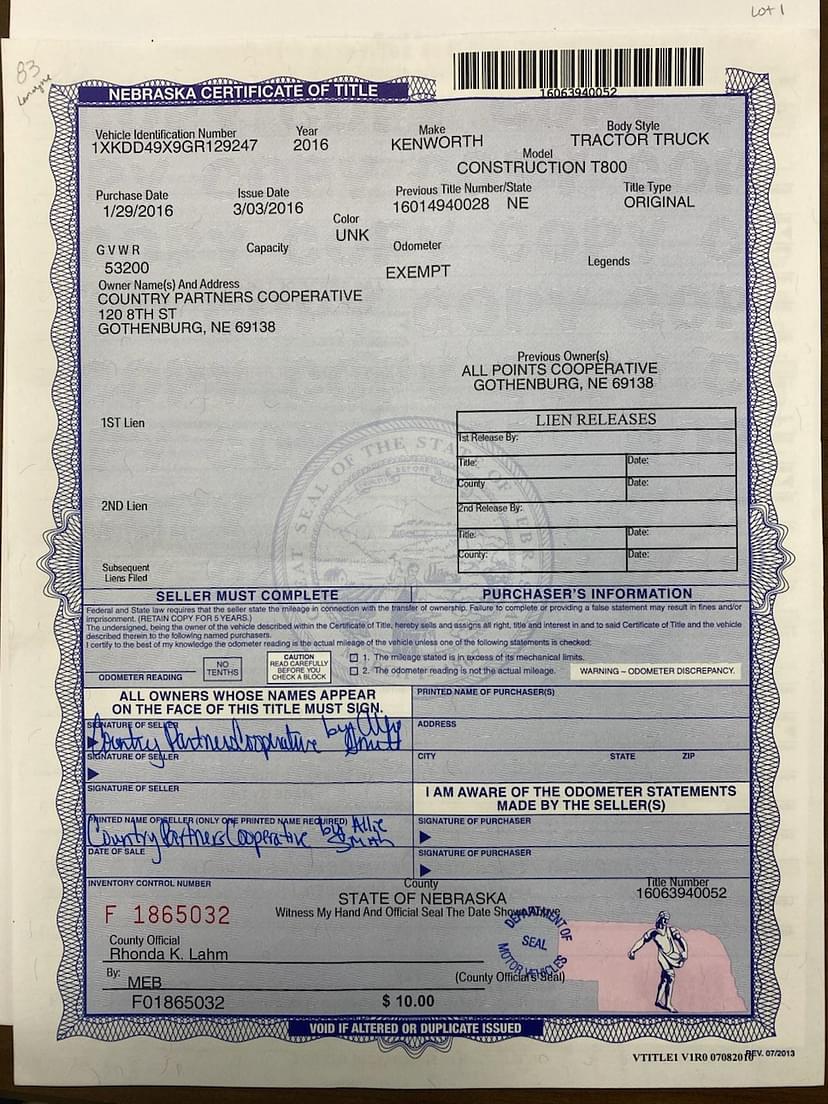 Lot 1
83
16063940052
NEBRASKA CERTIFICATE OF TITLE
Vehicle Identification Number Year Make Body Style
1XKDD49X9GR129247 2016 KENWORTH TRACTOR TRUCK
Model
CONSTRUCTION T800
Purchase Date Issue Date Previous Title Number/State Title Type
1/29/2016 3/03/2016 16014940028 NE ORIGINAL
Color
UNK
G V W R Capacity Odometer Legends
53200 EXEMPT
Owner Name(s) And Address
COUNTRY PARTNERS COOPERATIVE
120 8TH ST
GOTHENBURG, NE 69138
Previous Owner(s)
ALL POINTS COOPERATIVE
GOTHENBURG, NE 69138
1ST Lien
LIEN RELEASES
1st Release By:
Title: Date:
County Date:
2ND Lien
2nd Release By:
Title: Date:
County: Date:
Subsequent
Liens Filed
SELLER MUST COMPLETE PURCHASER'S INFORMATION
Federal and State law requires that the seller state the mileage in connection with the transfer of ownership. Failure to complete or providing a false statement may result in fines and/or
imprisonment. (RETAIN COPY FOR 5 YEARS.)
The undersigned, being the owner of the vehicle described within the Certificate of Title, hereby sells and assigns all right, title and interest in and to said Certificate of Title and the vehicle
described therein to the following named purchasers.
I certify to the best of my knowledge the odometer reading is the actual mileage of the vehicle unless one of the following statements is checked:
ODOMETER READING
NO
TENTHS
CAUTION
READ CAREFULLY
BEFORE YOU
CHECK A BLOCK
1. The mileage stated is in excess of its mechanical limits.
2. The odometer reading is not the actual mileage.
WARNING – ODOMETER DISCREPANCY.
ALL OWNERS WHOSE NAMES APPEAR
ON THE FACE OF THIS TITLE MUST SIGN.
SIGNATURE OF SELLER
Country Partners Cooperative by Allie
Smith
SIGNATURE OF SELLER
SIGNATURE OF SELLER
PRINTED NAME OF SELLER (ONLY ONE PRINTED NAME REQUIRED)
Country Partners Cooperative by Allie
Smith
DATE OF SALE
PRINTED NAME OF PURCHASER(S)
ADDRESS
CITY STATE ZIP
I AM AWARE OF THE ODOMETER STATEMENTS
MADE BY THE SELLER(S)
SIGNATURE OF PURCHASER
SIGNATURE OF PURCHASER
INVENTORY CONTROL NUMBER County Title Number
16063940052
F 1865032
STATE OF NEBRASKA
Witness My Hand And Official Seal The Date Shown Above
DEPARTMENT OF
SEAL
MOTOR VEHICLES
County Official
Rhonda K. Lahm
By: MEB
(County Official's Seal)
F01865032 $ 10.00
VOID IF ALTERED OR DUPLICATE ISSUED
VTITLE1 V1R0 07082016
REV. 07/2013